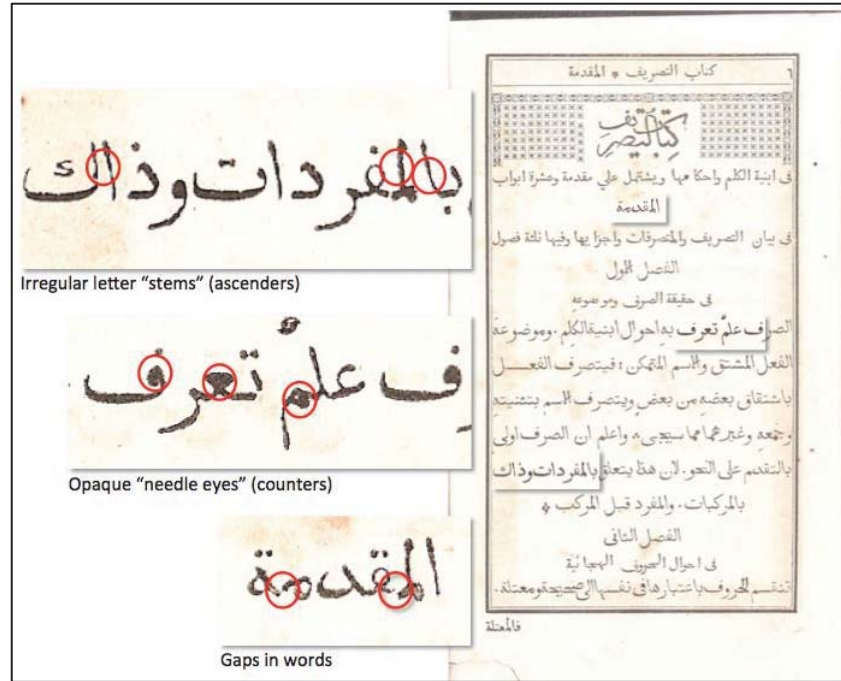 بالمفردات وذاك
Irregular letter “stems” (ascenders)
ف علمٌ تعرف
Opaque “needle eyes” (counters)
المقدمة
Gaps in words
كتاب التصريف * المقدمة ٦
كتاب التصريف
فى ابنية الكلم واحكامها ويشتمل على مقدمة وعشرة ابواب
المقدمة
فى بيان التصريف والمتصرفات واجزايها وفيها ثلثة فصول
الفصل الاول
فى حقيقة الصرف وموضوعه
الصرف علمٌ تعرف به احوال ابنية الكلم . وموضوعه
الفعل المشتق والاسم المتمكن : فيتصرف الفعل
باشتقاق بعضه من بعض ويتصرف الاسم بتثنيته
وجمعه وغيرهما مما سيجى ^ واعلم ان الصرف اولى
بالتقدم على النحو . لان هذا يتعلق بالمفردات وذاك
بالمركبات . والمفرد قبل المركب *
الفصل الثانى
فى احوال الحروف الهجائية
تنقسم الحروف باعتبارها فى نفسها الى صحيحة ومعتلة .
فالمعتلة